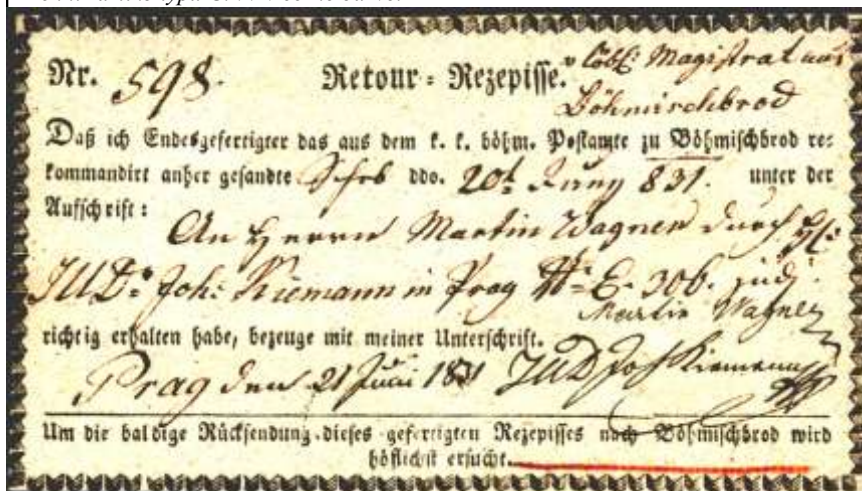 Nr. 598. Retour-Rezepisse. v Löbl: Magistrat aus
Böhmischbrod
Daß ich Endesgefertigter das aus dem k. k. böhm. Postamte zu Böhmischbrod re-
kommandirt anher gesandte ddo. 20t Juny 831. unter der
Aufschrift:
An Herrn Martin Wagner durch
JUDr Joh: Kiemann in Prag N: E. 306.
Martin Wagner
richtig erhalten habe, bezeuge mit meiner Unterschrift.
Prag den 21 Juni 1831 JUD Joh Kiemann
Um die baldige Rücksendung dieses gefertigten Rezepisses nach Böhmischbrod wird
höflichst ersucht.